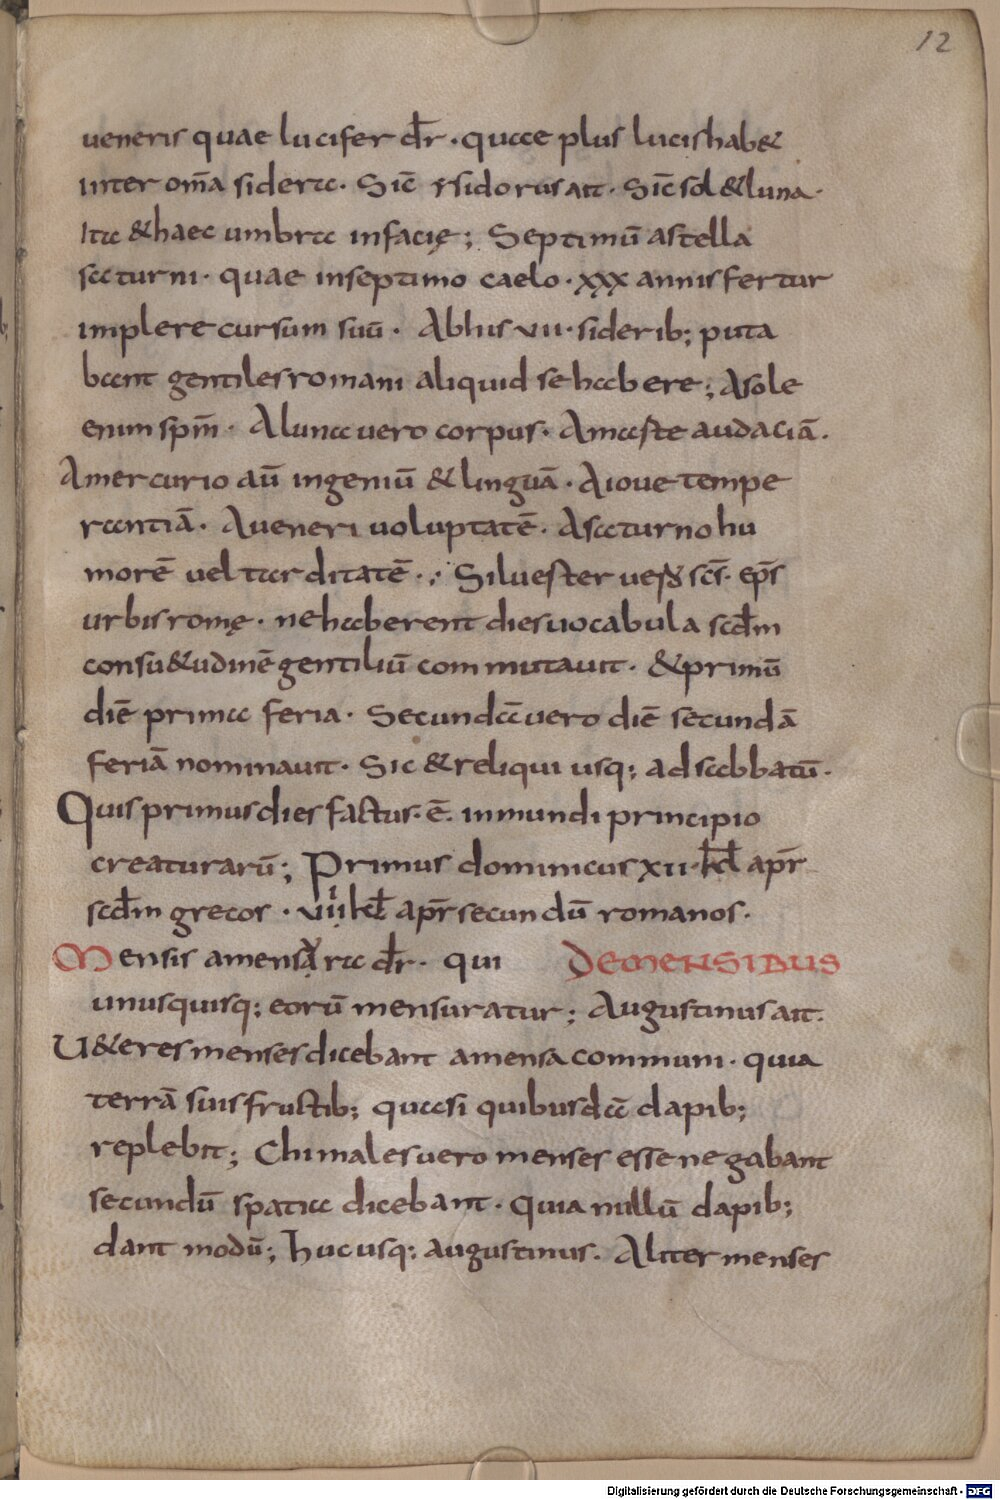 12
ueneris quae lucifer dr̄ · quae plus lucis hab&
inter om̄a sidera · Sic̄ ysidorus ait · Sic̄ sol & luna ·
Ita & haec umbra in facię ; Septimū astella
saturni · quae in septimo caelo · xxx annis fertur
implere cursum suū · Ab his vii · siderib; puta
bant gentiles romani aliquid se habere ; A sole
enim spm̄ · A luna uero corpus · A marte audaciā ·
A mercurio aū ingeniū & linguā · A ioue tempe
rantiā · A ueneri uoluptatē · A saturno hu
morē uel tarditatē · Siluester scs̄ · ep̄s
urbis romę · ne haberent dies uocabula scd̄m
consu&udinē gentiliū commutauit · & primū
diē prima feria · Secundā uero diē secundā
feriā nominauit · Sic & reliqui usq; ad sabbatū ·
Quis primus dies factus · ē · in mundi principio
creaturarū ; Primus dominicus xii · kł apr̄
scd̄m grecos · viii kł apr̄ secundū romanos ·
Mensis a mensura dr̄ · qui DE MENSIBUS
unusquisq; eorū mensuratur ; Augustinus ait ·
U&eres menses dicebant a mensa communi · quia
terrā suis fructib; quasi quibusdā dapib;
replebit ; Chimales uero menses esse negabant
secundū spatia dicebant · Quia nullū dapib;
dant modū ; hucusq; augustinus · Aliter menses
Digitalisierung gefördert durch die Deutsche Forschungsgemeinschaft - DFG